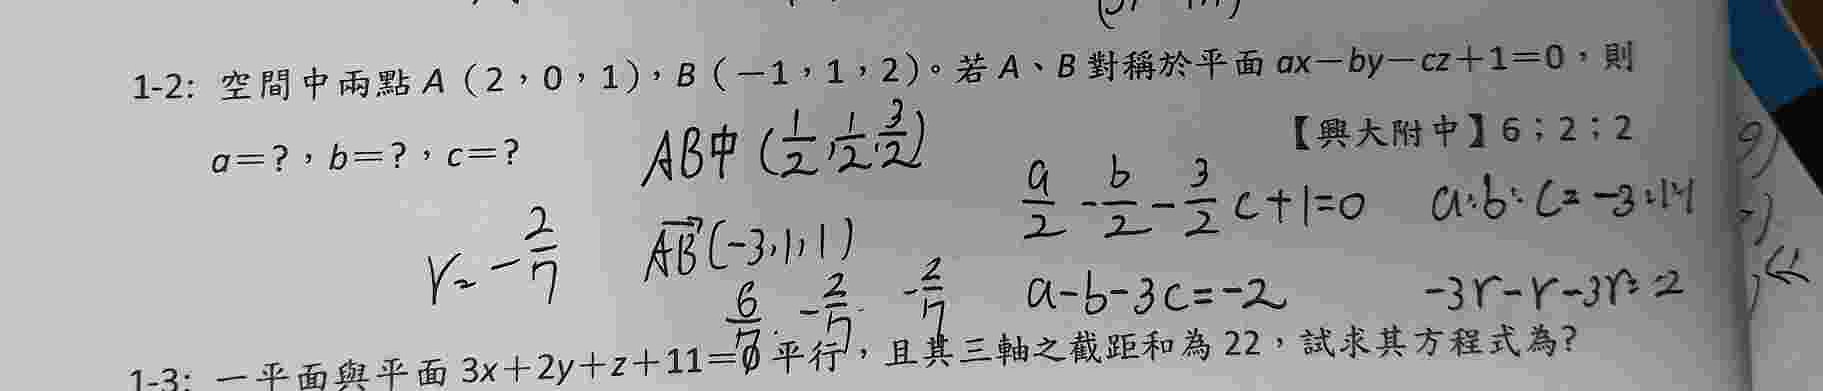 1-2: 空間中兩點 A（2，0，1），B（－1，1，2）。若 A、B 對稱於平面 ax－by－cz＋1＝0，則
a＝?，b＝?，c＝?
【興大附中】6；2；2
AB中 (1/2, 1/2, 3/2)
a/2 - b/2 - 3/2 c + 1 = 0
a:b:c = -3:1:1
r = -2/7
AB→ (-3,1,1)
6/7. -2/7. -2/7
a-b-3c=-2
-3r-r-3r=2
1-3: 一平面與平面 3x＋2y＋z＋11＝0 平行，且其三軸之截距和為 22，試求其方程式為?